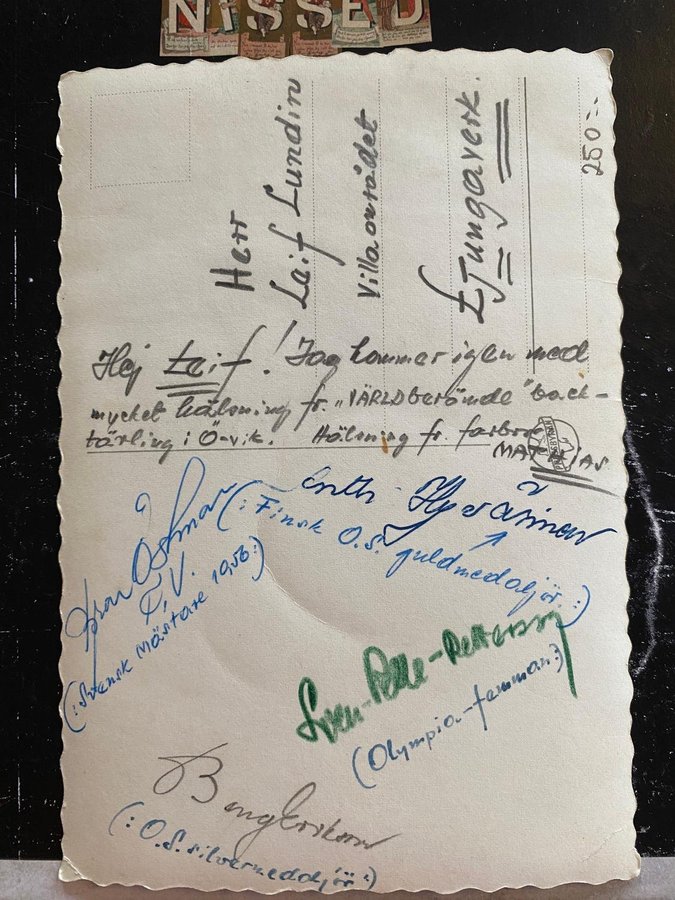 NISSED
Herr
Leif Lundin
Villaområdet
Ljungaverk.
250:-
Hej Leif! Jag kommer igen med
mycket hälsning fr. "VÄRLDberömde" back-
tävling i Ö-vik. Hälsning fr. farbror
MATHIAS
Antti Hyvärinen
(: Finsk O.S. guldmedaljör :)
Östman
(: Svensk Mästare 1956 :)
Sven-Pelle Pettersson
(Olympia-femman :)
Beng Erikson
(: O.S. silvermedaljör :)